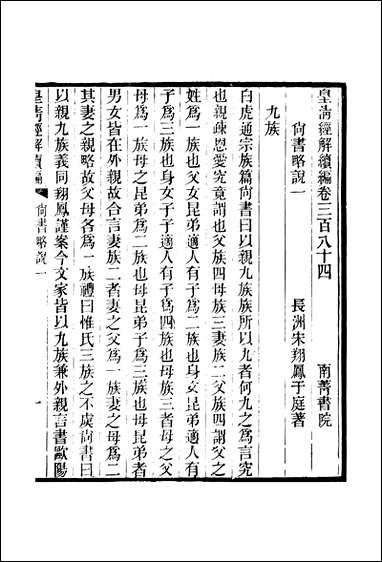 皇清經解續編卷三百八十四
南菁書院
尙書略說一
長洲宋翔鳳于庭著
九族
白虎通宗族篇尙書曰以親九族族所以九者何九之爲言究
也親疎恩愛究竟謂也父族四母族三妻族二父族四謂父之
姓爲一族也父女昆弟適人有子爲二族也身女昆弟適人有
子爲三族也身女子子適人有子爲四族也母族三者母之父
母爲一族也母之昆弟爲二族也母昆弟子爲三族也母昆弟者
男女皆在外親故合言妻族二者妻之父爲一族妻之母爲二
其妻之親略故父母各爲一族禮曰惟氏三族之不虞尙書曰
以親九族義同翔鳳謹案今文家皆以九族兼外親言書歐陽
皇淸經解續編
尙書略說一
一